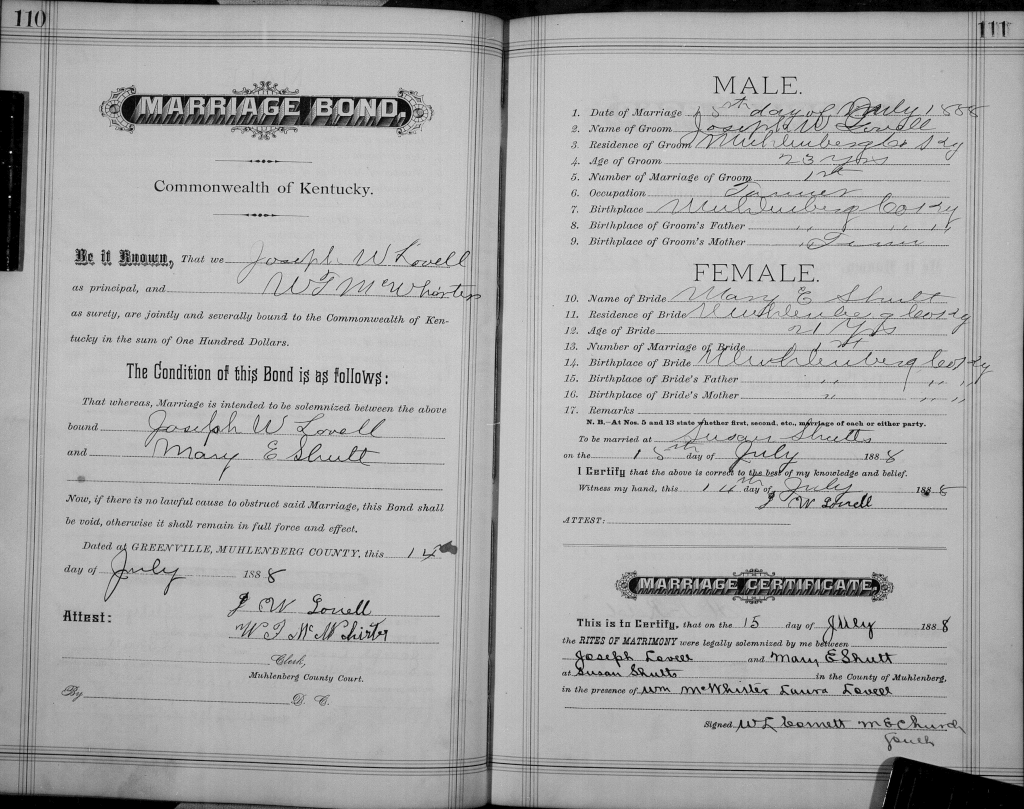 110
MARRIAGE BOND.
Commonwealth of Kentucky.
Be it Known, That we Joseph W Lovell
as principal, and W F McWhirter
as surety, are jointly and severally bound to the Commonwealth of Ken-
tucky in the sum of One Hundred Dollars.
The Condition of this Bond is as follows:
That whereas, Marriage is intended to be solemnized between the above
bound Joseph W Lovell
and Mary E Shutt
Now, if there is no lawful cause to obstruct said Marriage, this Bond shall
be void, otherwise it shall remain in full force and effect.
Dated at GREENVILLE, MUHLENBERG COUNTY, this 14
day of July 1888
Attest: J W Lovell
W F McWhirter
Clerk,
Muhlenberg County Court.
By D. C.
111
MALE.
1. Date of Marriage 15th day of July 1888
2. Name of Groom Joseph W Lovell
3. Residence of Groom Muhlenberg Co Ky
4. Age of Groom 23 Yrs
5. Number of Marriage of Groom 1st
6. Occupation Farmer
7. Birthplace Muhlenberg Co Ky
8. Birthplace of Groom's Father " " " "
9. Birthplace of Groom's Mother " Tenn
FEMALE.
10. Name of Bride Mary E Shutt
11. Residence of Bride Muhlenberg Co Ky
12. Age of Bride 21 Yrs
13. Number of Marriage of Bride 1st
14. Birthplace of Bride Muhlenberg Co Ky
15. Birthplace of Bride's Father " " "
16. Birthplace of Bride's Mother " " "
17. Remarks
N. B.—At Nos. 5 and 13 state whether first, second, etc., marriage of each or either party.
To be married at Susan Shutts
on the 15th day of July 1888
I Certify that the above is correct to the best of my knowledge and belief.
Witness my hand, this 14th day of July 1888
J W Lovell
ATTEST:
MARRIAGE CERTIFICATE.
This is to Certify, that on the 15 day of July 1888
the RITES OF MATRIMONY were legally solemnized by me between
Joseph Lovell and Mary E Shutt
at Susan Shutts in the County of Muhlenberg,
in the presence of Wm McWhister Laura Lovell
Signed W L Cornett M E Church
South